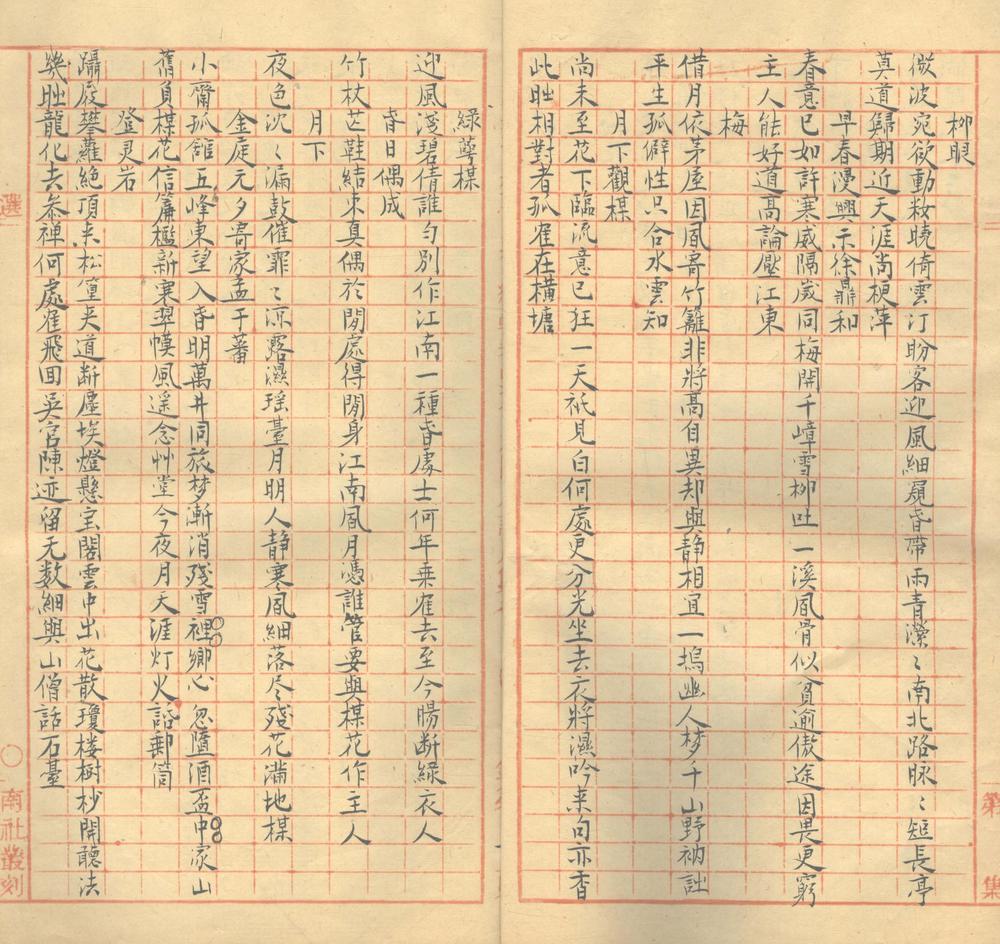 第 集
柳眼
微波宛欲動妝曉倚雲汀盼客迎風細窺香帶雨青濛〻南北路脉〻短長亭
莫道歸期近天涯尚梗萍
早春漫興示徐鼎和
春意已如許寒威隔歲同梅開千嶂雪柳吐一溪風骨似貧逾傲途因畏更窮
主人能好道高論壓江東
梅
借月依茅屋因風寄竹籬非將高自異却與静相宜一塢幽人梦千山野衲詩
平生孤僻性只合水雲知
月下觀楳
尚未至花下臨流意已狂一天祇見白何處更分光坐去衣將濕吟来句亦香
此時相對者孤隺在橫塘
綠萼楳
迎風淺碧倩誰勻別作江南一種香處士何年乗隺去至今腸断綠衣人
春日偶成
竹杖芒鞋結束真偶於閒處得閒身江南風月憑誰管要與楳花作主人
月下
夜色沈〻漏鼓催霏〻凉露濕瑶臺月明人静寒風細落尽殘花滿地楳
金庭元夕寄家孟于蕃
小齋孤館五峰東望入昏明萬井同旅梦漸消殘雪裡鄉心忽墮酒盃中家山
舊負楳花信簾檻新寒翠幙風遥念艸堂今夜月天涯灯火話郵筒
登灵岩
躡屐攀蘿絶頂来松篁夾道断塵埃燈懸宝閣雲中出花散瓊楼樹杪開聽法
幾時龍化去叅禅何處隺飛回吳宫陳迹留无数細與山僧話石臺
選 〇 南社叢刻